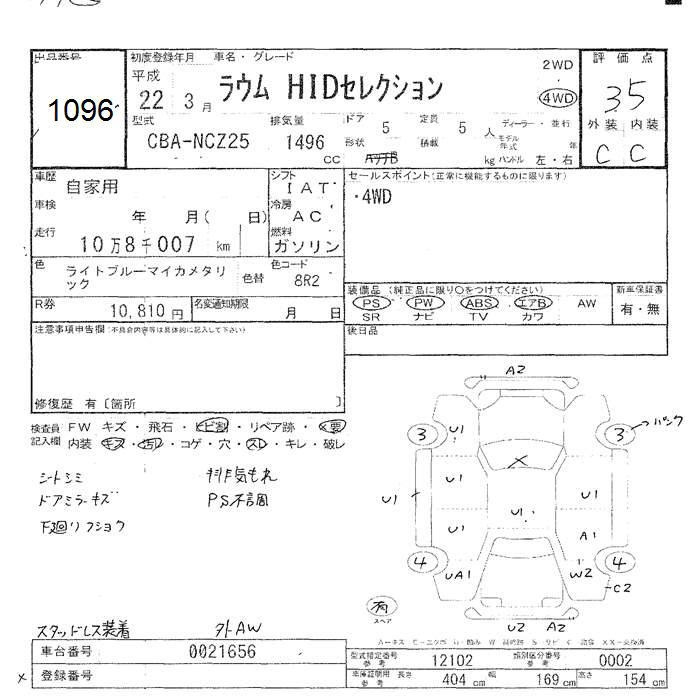 出品番号
1096
初度登録年月 車名・グレード
平成
22 3 月
ラウム HIDセレクション
2WD
4WD
評価点
35
外装 内装
C C
型式
CBA-NCZ25
排気量
1496
CC
ドア 5
定員 5 人
ディーラー・並行
モデル年式 年
形状
積載 kg
ハンドル 左・右
車歴 自家用
シフト
IAT
車検 年 月( 日)
冷房
AC
走行 10万8千007 km
燃料
ガソリン
セールスポイント(正常に機能するものに限ります)
・4WD
色
ライトブルーマイカメタリック
色替
色コード
8R2
R券 10,810 円
名変通知期限 月 日
装備品 (純正品に限り○をつけてください)
PS PW ABS エアB AW
SR ナビ TV カワ
新車保証書
有・無
後日品
注意事項申告欄(不具合内容等は具体的に記入して下さい)
修復歴 有〔箇所 〕
検査員記入欄
FW キズ・飛石・ヒビ割・リペア跡・X要
内装 キズ・汚レ・コゲ・穴・スレ・キレ・破レ
シートシミ
排気もれ
ドアミラーキズ
PS不調
下廻りフショク
A2
3
U1
3
パンク
X
U1
U1
U1
U1
U1
A1
4
UA1
W2
4
C2
有
スペア
U2 A2
スタッドレス装着
外AW
車台番号 0021656
X 登録番号
型式指定番号
参考
12102
類別区分番号
参考
0002
車庫証明用
参考
長さ 404 cm 幅 169 cm 高さ 154 cm